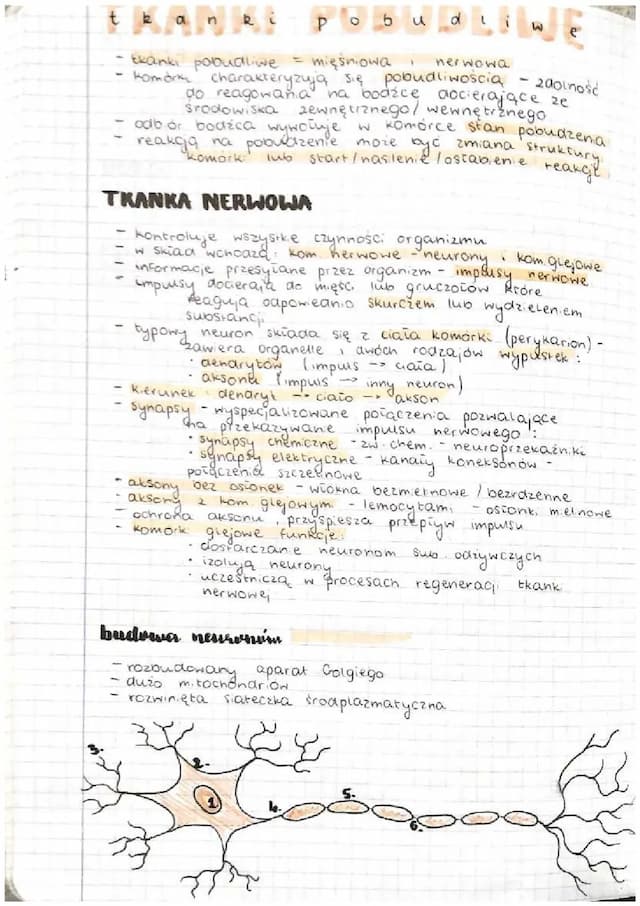 TKANKI POBUDLIWE
tkanki pobudliwe
- tkanki pobudliwe = mięśniowa i nerwowa
- komórki charakteryzują się pobudliwością - zdolność
do reagowania na bodźce docierające ze
środowiska zewnętrznego/wewnętrznego
- odbiór bodźca wywołuje w komórce stan pobudzenia
- reakcją na pobudzenie może być zmiana struktury
komórki lub start/nasilenie/osłabienie reakcji
TKANKA NERWOWA
- kontroluje wszystkie czynności organizmu
- w skład wchodzą: kom. nerwowe - neurony i kom. glejowe
- informacje przesyłane przez organizm - impulsy nerwowe
- impulsy docierają do mięśni lub gruczołów które
reagują odpowiednio skurczem lub wydzieleniem
substancji
- typowy neuron składa się z ciała komórki (perykarion) -
zawiera organelle i dwóch rodzajów wypustek:
· dendrytów (impuls → ciała)
· aksonu (impuls → inny neuron)
- kierunek: dendryt → ciało → akson
- synapsy - wyspecjalizowane połączenia pozwalające
na przekazywanie impulsu nerwowego:
· synapsy chemiczne - zw. chem. - neuroprzekaźniki
· synapsy elektryczne - kanały koneksonów -
połączenia szczelinowe
- aksony bez osłonek - włókna bezmielinowe / bezrdzenne
- aksony z kom. glejowymi - lemocytami - osłonki mielinowe
- ochrona aksonu, przyśpiesza przepływ impulsu
- komórki glejowe funkcje:
· dostarczanie neuronom sub. odżywczych
· izolują neurony
· uczestniczą w procesach regeneracji tkanki
nerwowej
budowa neuronów
- rozbudowany aparat Golgiego
- dużo mitochondriów
- rozwinięta siateczka środplazmatyczna
3.
2.
1
4.
5.
6.